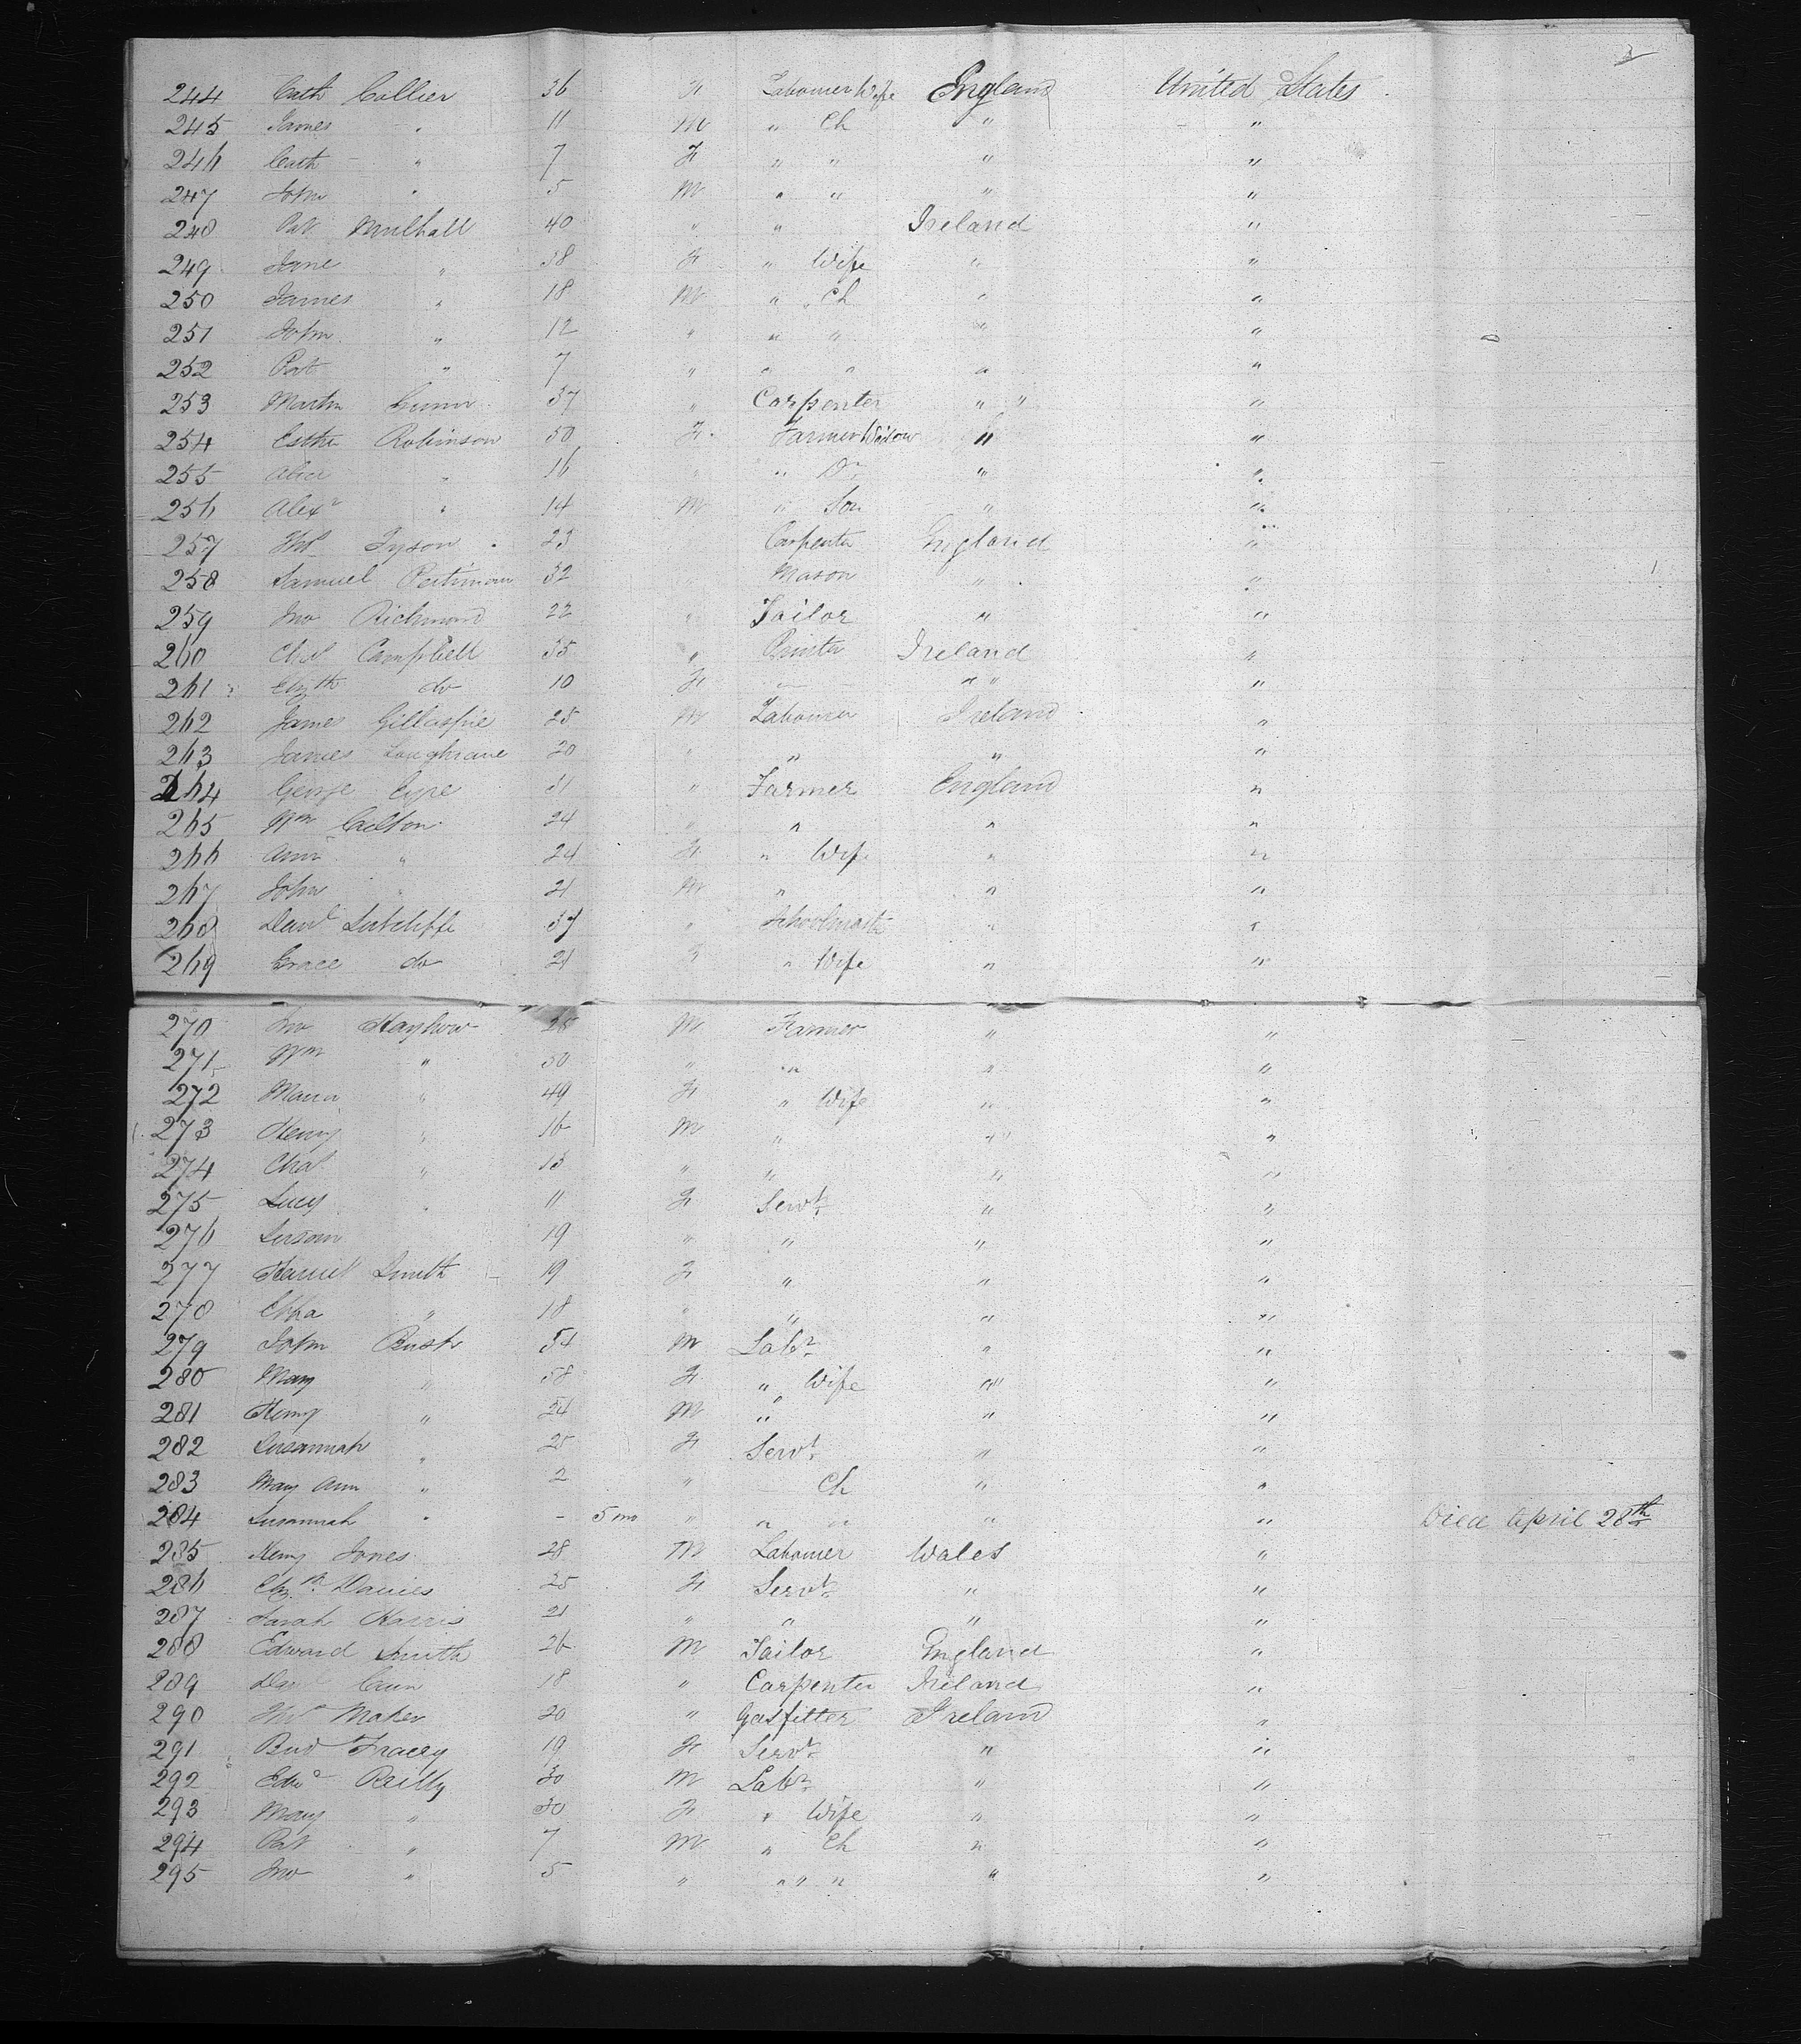 3
244 Cath Collier 36 F Labourer Wife England United States
245 James " 11 M " Ch " "
246 Cath " 7 F " " " "
247 John " 5 M " " " "
248 Pat Mulhall 40 " " Ireland "
249 Jane " 38 F " Wife " "
250 James " 18 M " Ch " "
251 John " 12 " " " " "
252 Pat " 7 " " " " "
253 Martin 37 " Carpenter " " "
254 Esther Robinson 50 F Farmer Widow " "
255 Alice " 16 " " Dr " "
256 Alexr " 14 M " Son " "
257 Thos Tyson 23 Carpenter England "
258 Samuel 32 " Mason " "
259 Jno Richmond 22 " Tailor " "
260 Chas Campbell 35 " Printer Ireland "
261 Elizth do 10 F " " "
262 James Gillaspie 25 M Labourer Ireland "
263 James Loughrane 20 " " " "
264 George Eyre 31 " Farmer England "
265 Wm Carlton 24 " " " "
266 Ann " 24 F " Wife " "
267 John " 21 M " " "
268 Danl Sutcliffe 37 " Schoolmastr " "
269 Grace do 21 F " Wife " "
270 Jno Hayhow 28 M Farmer " "
271 Wm " 50 " " " "
272 Maria " 49 F " Wife " "
273 Henry " 16 M " " "
274 Chas " 13 " " " "
275 Lucy " 11 F Servt " "
276 Susan 19 " " " "
277 Harriet Smith 19 F " " "
278 " 18 " " " "
279 John Bush 54 M Labr " "
280 Mary " 58 F " Wife " "
281 Henry " 24 M " " "
282 Susannah " 25 F Servt " "
283 Mary Ann " 2 " Ch " "
284 Susannah " - 5 mo " " " " " Died April 28th
285 Henry Jones 28 M Labourer Wales "
286 Elizth Davies 25 F Servt " "
287 Sarah Harris 21 " " " "
288 Edward Smith 26 M Tailor England "
289 18 " Carpenter Ireland "
290 Thos Maher 20 " Gasfitter Ireland "
291 Brid Tracey 19 F Servt " "
292 Edwd Reilly 30 M Labr " "
293 Mary " 30 F " Wife " "
294 Pat " 7 M " Ch " "
295 Jno " 5 " " " " " "